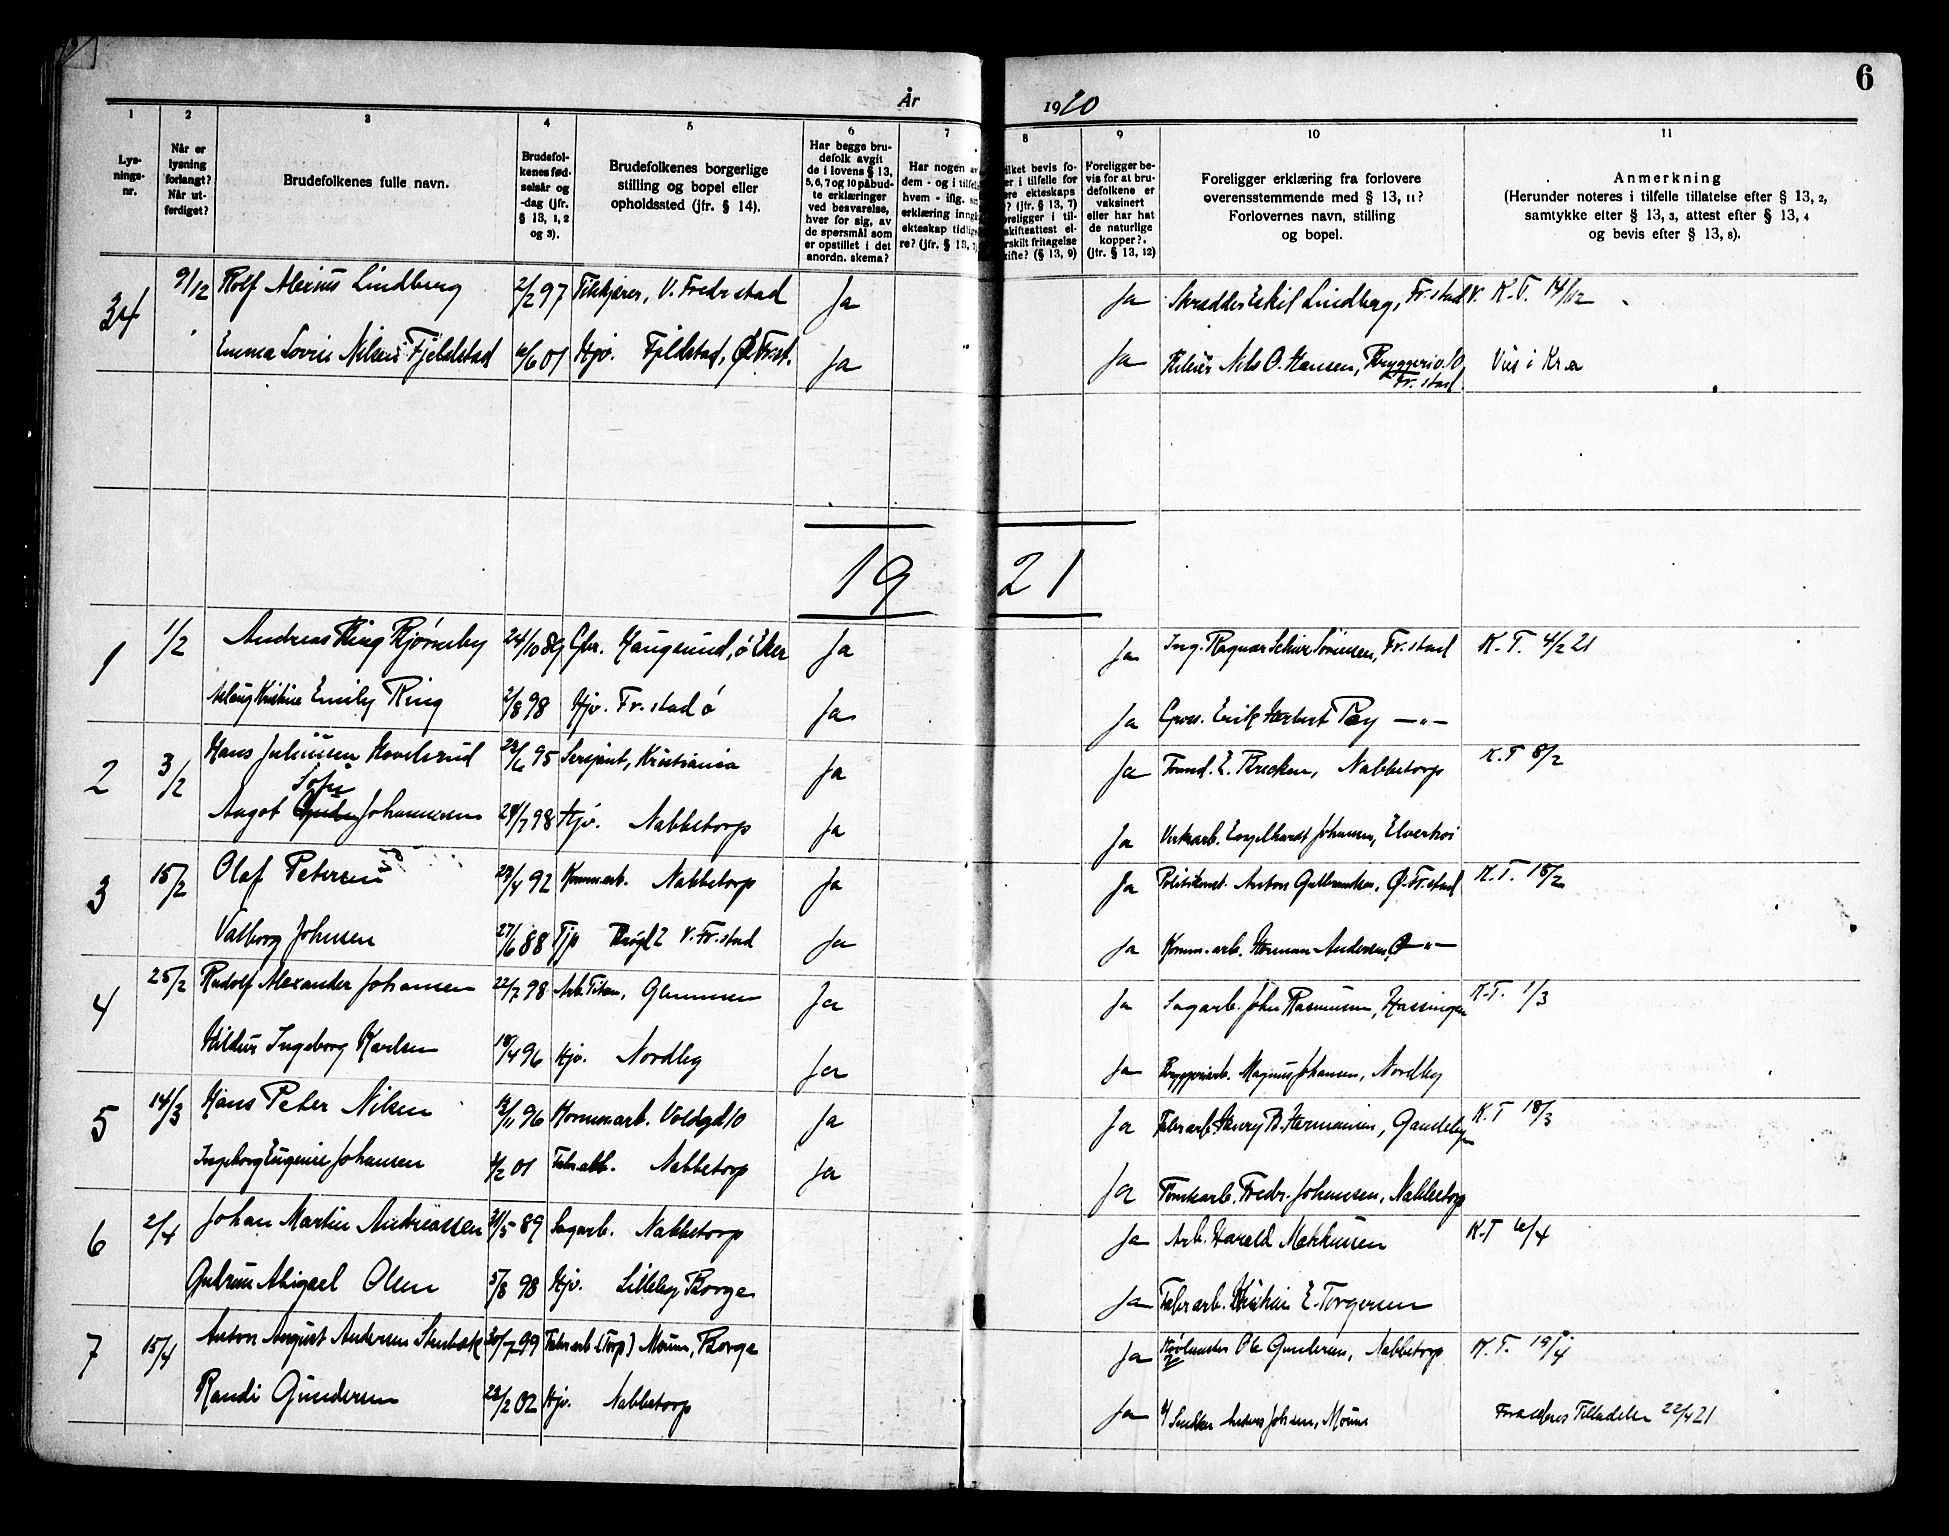 6
År 1920
1 2 3 4 5 6 7 8 9 10 11
Lys-
nings-
nr.
Når er
lysning
forlangt?
Når ut-
ferdiget?
Brudefolkenes fulle navn.
Brudefol-
kenes fød-
selsår og
-dag (jfr.
§ 13, 1, 2
og 3).
Brudefolkenes borgerlige
stilling og bopel eller
opholdssted (jfr. § 14).
Har begge bru-
defolk avgit
de i lovens § 13,
5, 6, 7 og 10 påbud-
te erklæringer
ved besvarelse,
hver for sig, av
de spørsmål som
er opstillet i det
anordn. skema?
Har nogen av
dem - og i tilfelle
hvem - iflg. sin
erklæring inngått
ekteskap tidlige-
re? (jfr. § 13, 7
ilket bevis fo-
er i tilfelle for
ere ekteskaps
? (jfr. § 13, 7)
religger i til-
skifteattest el-
rskilt fritagelse
kifte? (§ 13, 9)
Foreligger be-
vis for at bru-
defolkene er
vaksinert
eller har hat
de naturlige
kopper?.
(jfr. § 13, 12)
Foreligger erklæring fra forlovere
overensstemmende med § 13, 11?
Forlovernes navn, stilling
og bopel.
Anmerkning
(Herunder noteres i tilfelle tillatelse efter § 13, 2,
samtykke efter § 13, 3, attest efter § 13, 4
og bevis efter § 13, 8).
34 9/12 Rolf Alexius Lindberg 2/2 97 Tikkjører, V. Fredrstad Ja Ja Skrædder Eskil Lindberg, Fr.stad V. K.T. 14/12
Emma Lovise Nilsen Fjeldstad 6/6 01 Hjv. Fjeldstad, Ø. Frst. Ja Ja Nils O. Hansen, Bryggeriv. 10 Fr.stad. Vies i Kr.a
19 21
1 1/2 Andreas Ring Bjørneby 24/10 89 Gbr. Haugsund, ø Eker Ja Ja Ing. Ragnar Schive Sørensen, Fr.stad K.T. 4/2 21
Aslaug Kristine Emily Ring 2/8 98 Hjv. Fr.stad ø Ja Ja Gross. Erik Herbert Pay —"—
2 3/2 Hans Juliussen Hovelsrud 23/6 95 Sersjant, Kristiania Ja Ja Formd. E. Brecken, Nabbetorp K.T 8/2
Sofie
Aagot Johannesen 24/7 98 Hjv. Nabbetorp Ja Ja Verksarb. Engelhardt Johansen, Elverhøi
3 15/2 Olaf Petersen 29/4 92 Kommarb. Nabbetorp Ja Ja Politikonst. Anton Gulbrandsen, Ø. Fr.stad K.T. 18/2
Valborg Johnsen 27/6 88 Tjp V. Fr.stad Ja Ja Komm.arb. Herman Andersen Ø —"—
4 25/2 Rudolf Alexander Johansen 22/7 98 Arb. Titan, Glemmen Ja Ja Sagarb. John Rasmussen, Hassingen K.T. 1/3
Hildur Ingeborg Karlsen 18/4 96 Hjv. Nordby Ja Ja Bryggeriarb. Magnus Johansen, Nordby
5 14/3 Hans Peter Nilsen 13/11 96 Kommarb. Voldgd 10 Ja Ja Fabrarb. Henry B. Hermansen, Gaudeby K.T 18/3
Ingeborg Eugenie Johansen 3/2 01 Fabr.arb. Nabbetorp Ja Ja Tomtearb. Fredr. Johansen, Nabbetorp
6 2/4 Johan Martin Andreassen 31/5 89 Sagarb. Nabbetorp Ja Arb. Harald Markussen K.T 6/4
Gudrun Abigael Olsen 5/8 98 Hjv. Lilleby, Borge Ja Fabrarb. Kristian E. Torgersen
7 15/4 Anton August Andersen Stenbæk 30/7 99 Fabrarb (Torp) Moum, Borge Ja Ole Gundersen, Nabbetorp K.T. 19/4
Randi Gundersen 23/2 02 Hjv. Nabbetorp Ja Snekker Anders Johnsen, Moum Forældres Tilladelse 22/4 21